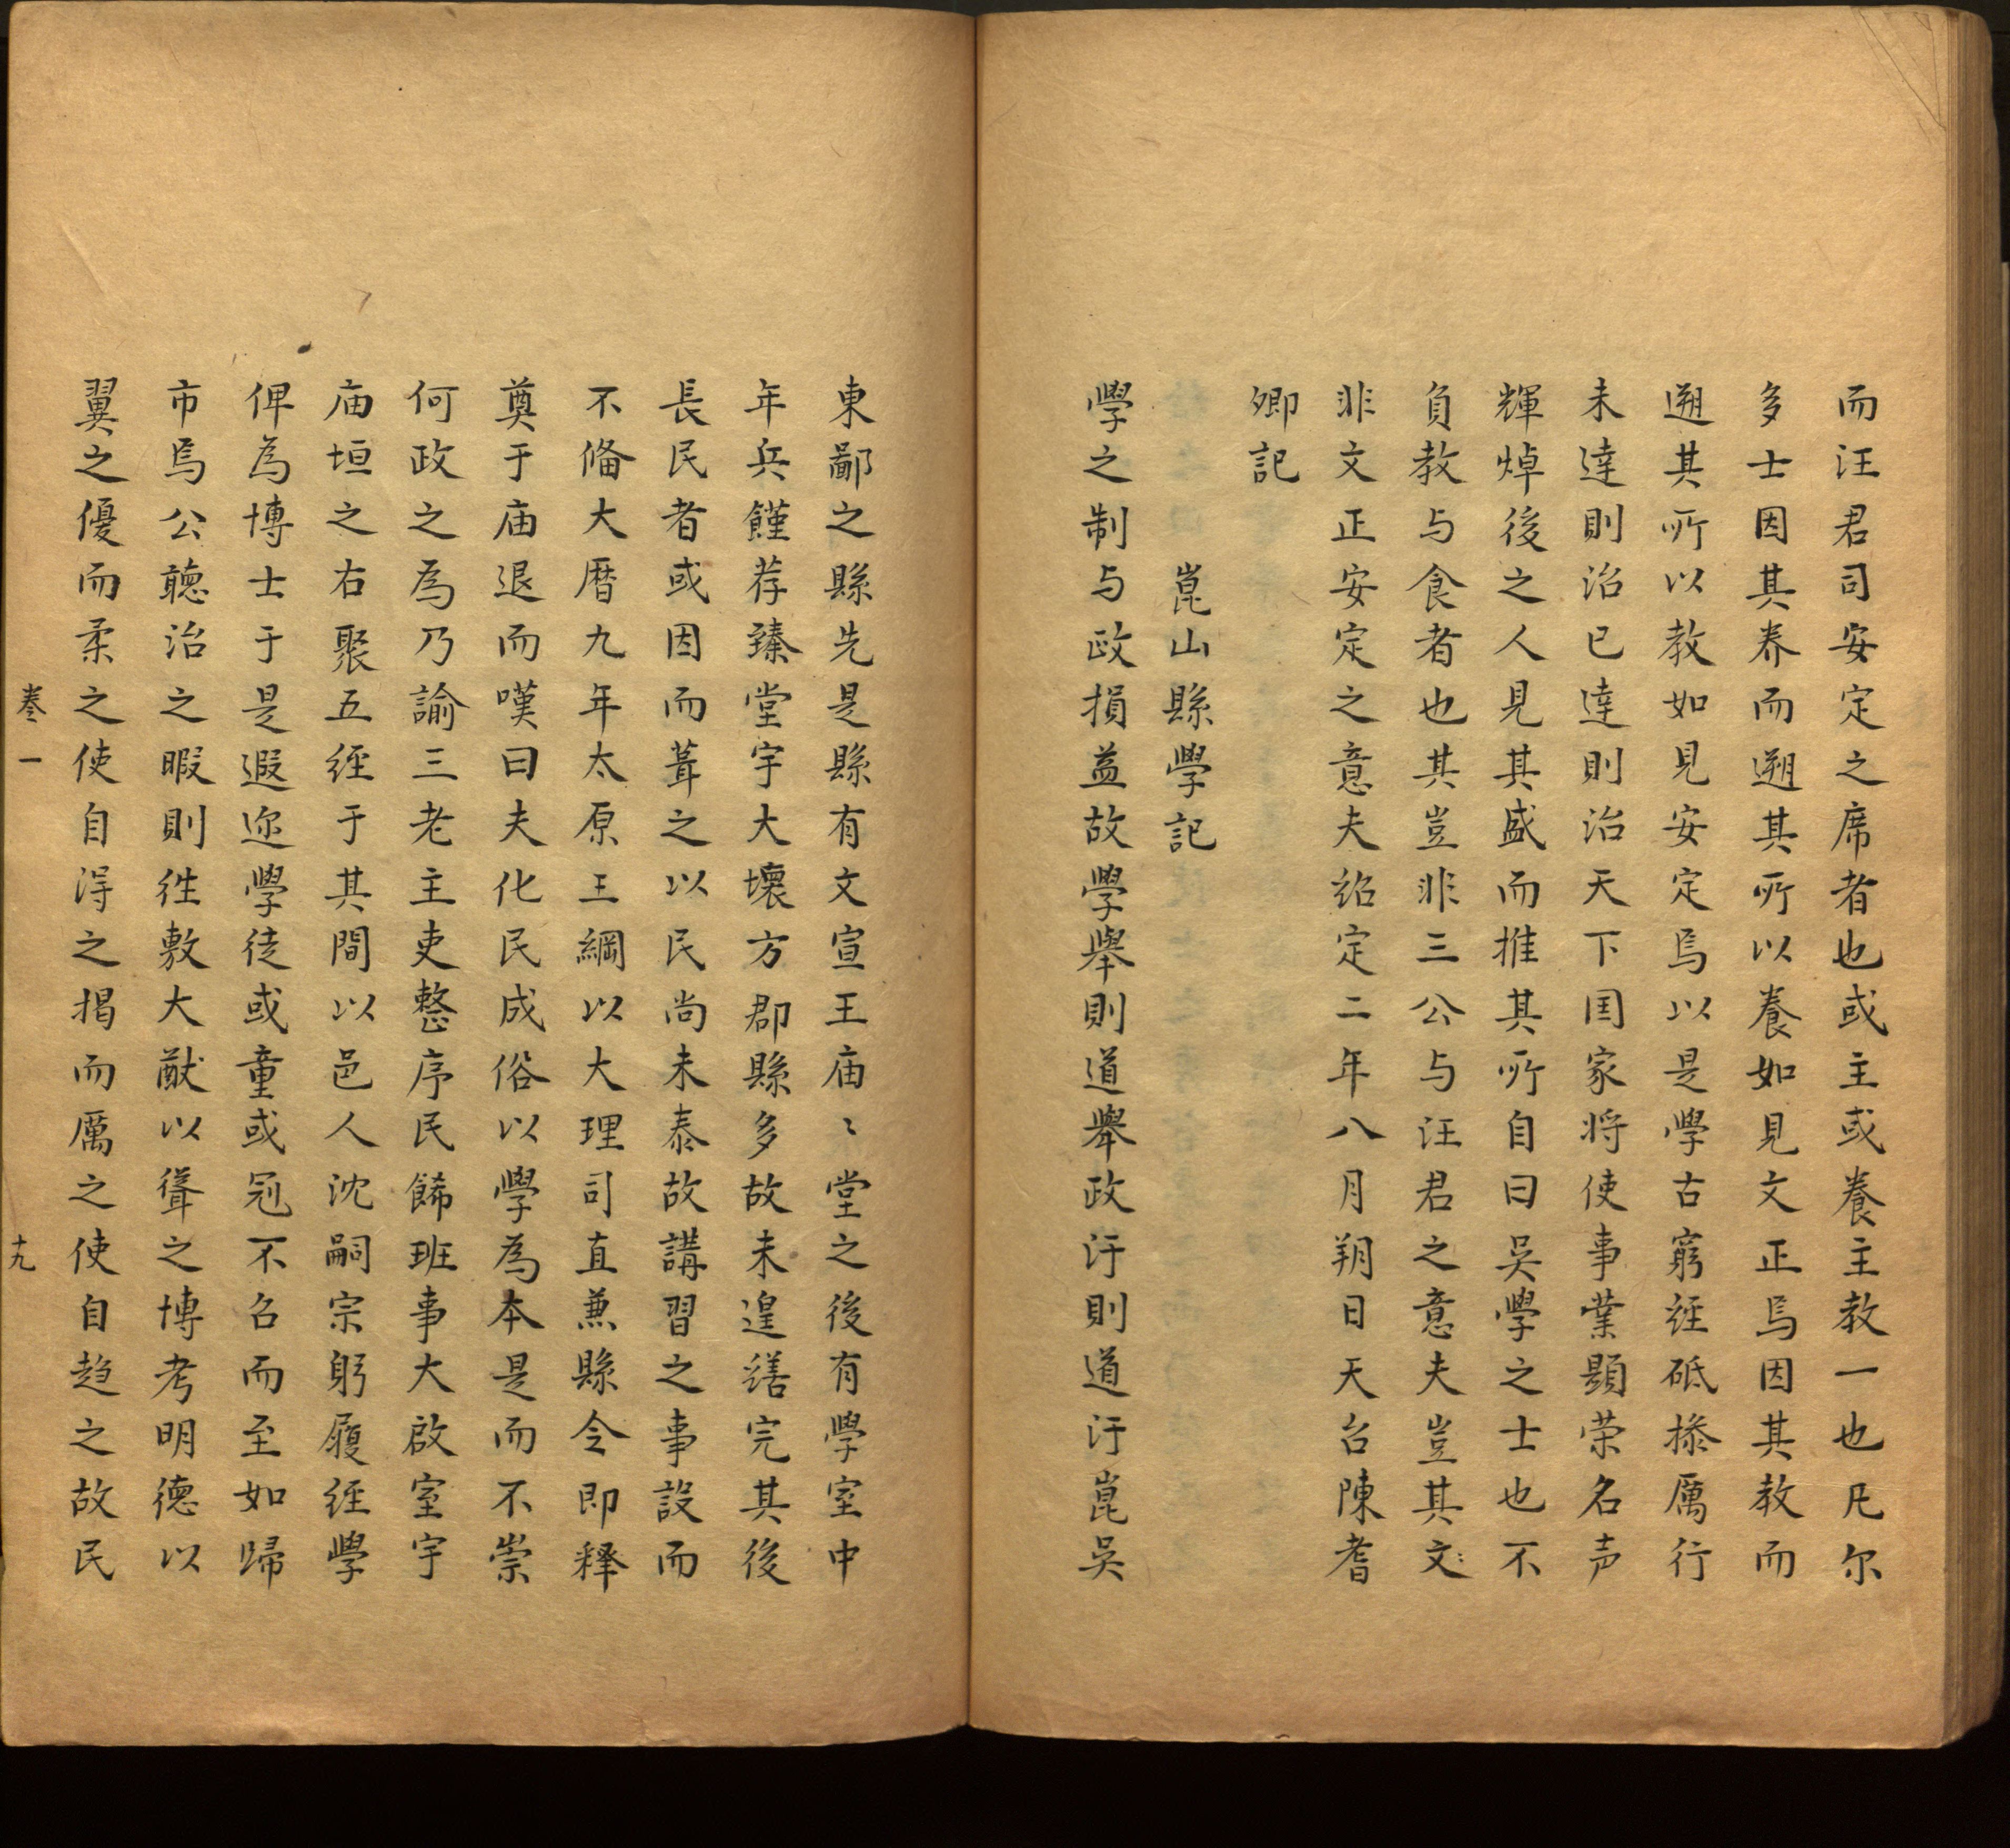 而汪君司安定之席者也或主或養主教一也凡尔
多士因其养而遡其所以養如見文正焉因其教而
遡其所以教如見安定焉以是學古窮經砥掺厲行
未達則治已達則治天下国家将使事業顕荣名声
輝焯後之人見其盛而推其所自曰吳學之士也不
負教与食者也其豈非三公与汪君之意夫豈其文
非文正安定之意夫紹定二年八月朔日天台陳耆
卿記
崑山縣學記
學之制与政損益故學舉則道舉政汙則道汙崑吳
東鄙之縣先是縣有文宣王庙〻堂之後有學室中
年兵饉荐臻堂宇大壞方郡縣多故未遑繕完其後
長民者或因而葺之以民尚未泰故講習之事設而
不俻大暦九年太原王綱以大理司直兼縣令即释
奠于庙退而嘆曰夫化民成俗以學為本是而不崇
何政之為乃諭三老主吏整序民餙班事大啟室宇
庙垣之右聚五経于其間以邑人沈嗣宗躬履経學
俾為博士于是遐迩學徒或童或冠不召而至如歸
市焉公聴治之暇則徃敷大猷以聳之博考明德以
翼之優而柔之使自淂之掲而厲之使自趋之故民
卷一
十九